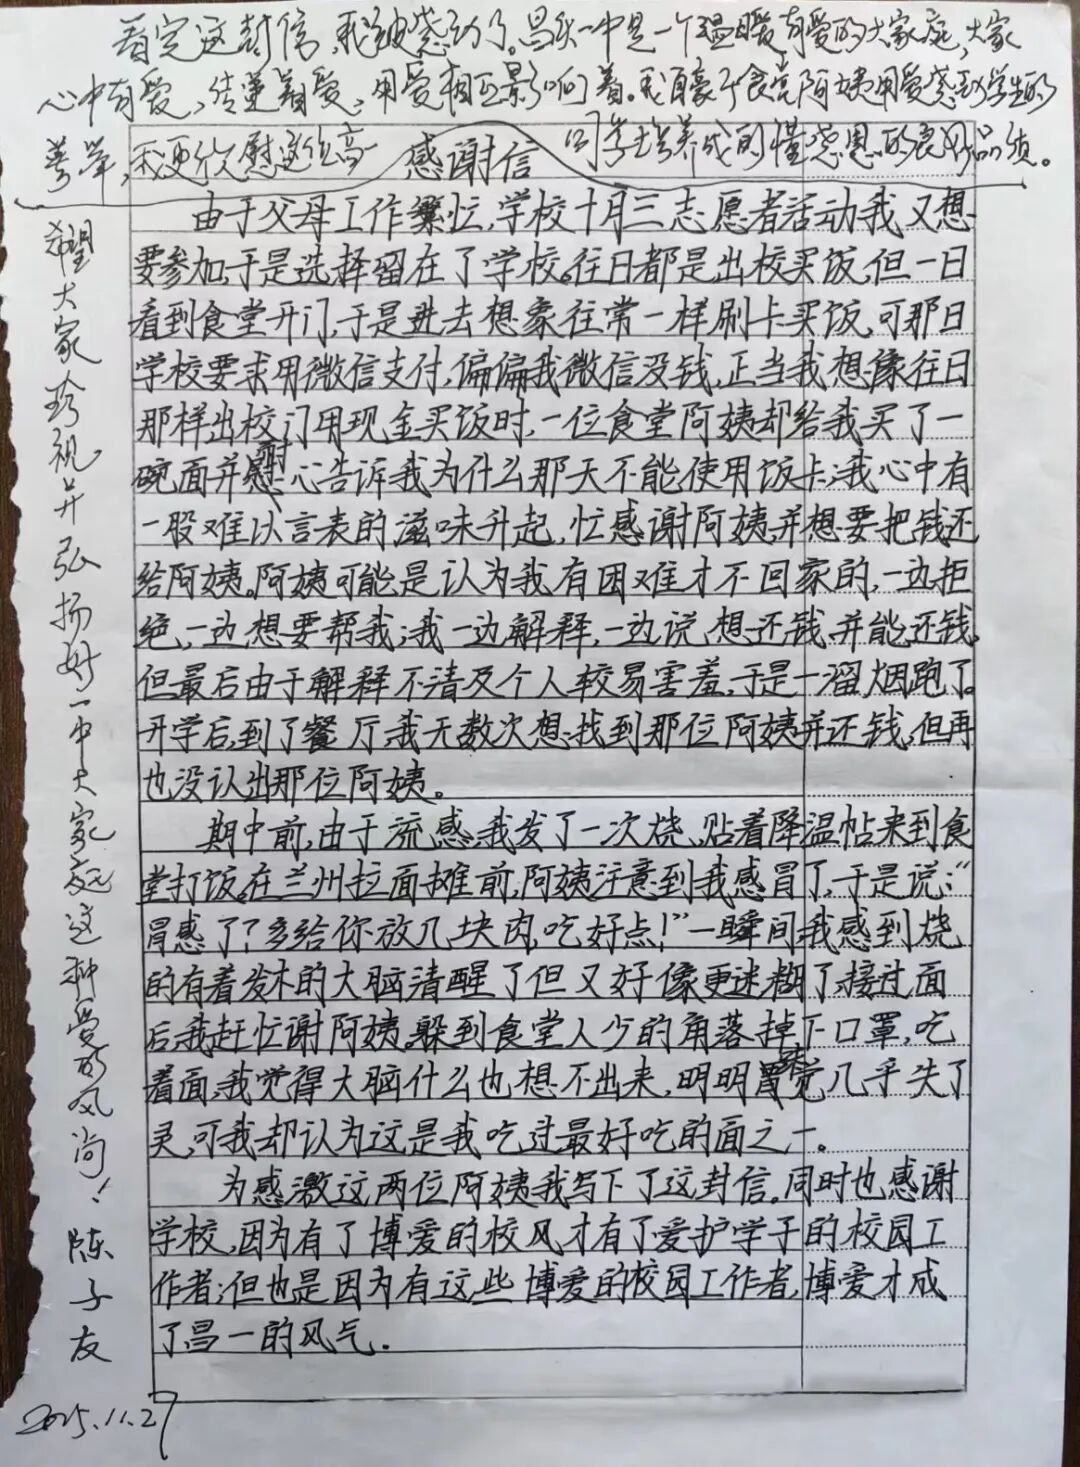 看完这封信，我被感动了。昌乐一中是一个温暖有爱的大家庭，大家
心中有爱，传递着爱，用爱相互影响着。我自豪于食堂阿姨用爱感动学生的
善举，我更欣慰这位高一
同学培养成的懂感恩的良好品质。
希望大家珍视并弘扬好一中大家庭这种爱的风尚！陈子友
2025.11.27
感谢信
由于父母工作繁忙，学校十月三志愿者活动我又想
要参加，于是选择留在了学校。往日都是出校买饭，但一日
看到食堂开门，于是进去想象往常一样刷卡买饭，可那日
学校要求用微信支付，偏偏我微信没钱，正当我想像往日
那样出校门用现金买饭时，一位食堂阿姨却给我买了一
碗面并耐心告诉我为什么那天不能使用饭卡；我心中有
一股难以言表的滋味升起，忙感谢阿姨并想要把钱还
给阿姨。阿姨可能是认为我有困难才不回家的，一边拒
绝，一边想要帮我；我一边解释，一边说想还钱并能还钱，
但最后由于解释不清及个人较易害羞，于是一溜烟跑了。
开学后，到了餐厅，我无数次想找到那位阿姨并还钱，但再
也没认出那位阿姨。
期中前，由于流感，我发了一次烧、贴着降温帖来到食
堂打饭。在兰州拉面摊前，阿姨注意到我感冒了，于是说：“
冒感了？多给你放几块肉，吃好点！”一瞬间我感到烧
的有着发木的大脑清醒了但又好像更迷糊了，接过面
后，我赶忙谢阿姨。躲到食堂人少的角落掉下口罩，吃
着面，我觉得大脑什么也想不出来，明明味觉几乎失了
灵，可我却认为这是我吃过最好吃的面之一。
为感激这两位阿姨我写下了这封信。同时也感谢
学校，因为有了博爱的校风才有了爱护学子的校园工
作者；但也是因为有这些博爱的校园工作者，博爱才成
了昌一的风气。